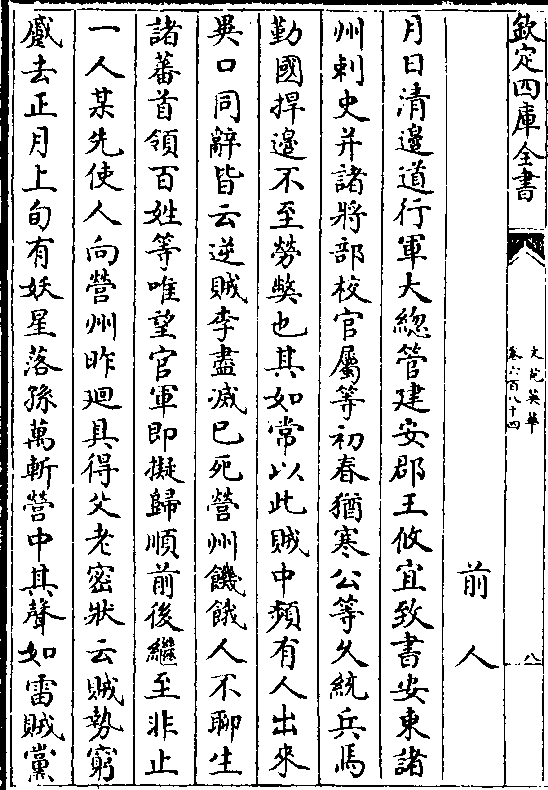 欽定四庫全書
文苑英華
卷六百八十四
八
前人
月日清邊道行軍大總管建安郡王攸宜致書安東諸
州刺史并諸將部校官屬等初春猶寒公等久統兵馬
勤國捍邊不至勞弊也其如常以此賊中頻有人出來
異口同辭皆云逆賊李盡滅已死營州饑餓人不聊生
諸蕃首領百姓等唯望官軍即擬歸順前後繼至非止
一人某先使人向營州昨廻具得父老密狀云賊勢窮
蹙去正月上旬有妖星落孫萬斬營中其聲如雷賊黨